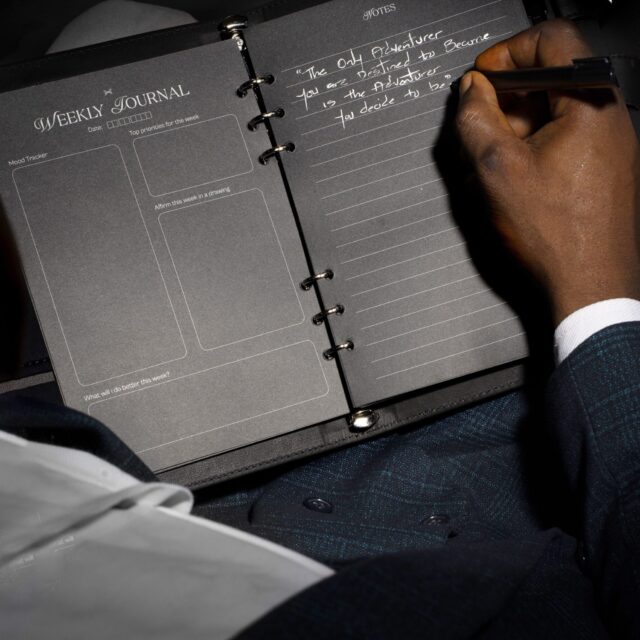 WEEKLY JOURNAL
Date:
Mood Tracker
Top priorities for this week
Affirm this week in a drawing
What will i do better this week?
NOTES
"The Only Adventurer
You are Destined to Become
is the Adventurer
You decide to be"